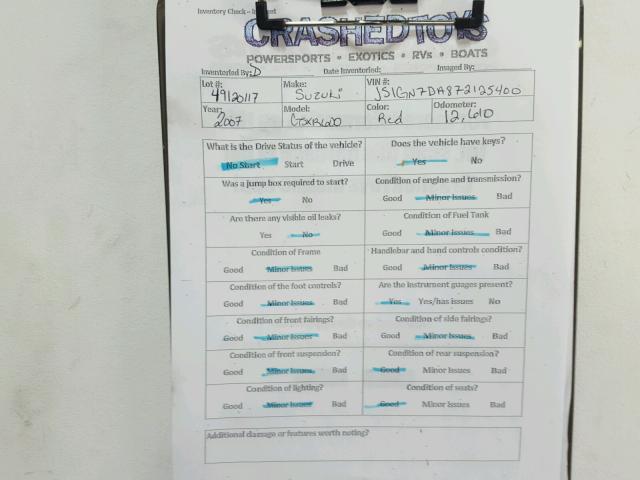 Inventory Check – In
CRASHEDTOYS
POWERSPORTS • EXOTICS • RVs • BOATS
Inventoried By: D Date Inventoried: Imaged By:
Lot #: 49120117 Make: Suzuki VIN #: JS1GN7DA872125400
Year: 2007 Model: GSXR600 Color: Red Odometer: 12,610
What is the Drive Status of the vehicle? Does the vehicle have keys?
No Start Start Drive Yes No
Was a jump box required to start? Condition of engine and transmission?
Yes No Good Minor Issues Bad
Are there any visible oil leaks? Condition of Fuel Tank
Yes No Good Minor Issues Bad
Condition of Frame Handlebar and hand controls condition?
Good Minor Issues Bad Good Minor Issues Bad
Condition of the foot controls? Are the instrument guages present?
Good Minor Issues Bad Yes Yes/has issues No
Condition of front fairings? Condition of side fairings?
Good Minor Issues Bad Good Minor Issues Bad
Condition of front suspension? Condition of rear suspension?
Good Minor Issues Bad Good Minor Issues Bad
Condition of lighting? Condition of seats?
Good Minor Issues Bad Good Minor Issues Bad
Additional damage or features worth noting?